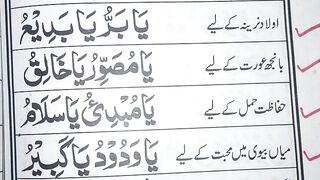 اولاد نرینہ کے لیے یَا بَرُّ یَا بَدِیْعُ
بانجھ عورت کے لیے یَا مُصَوِّرُ یَا خَالِقُ
حفاظت حمل کے لیے یَا مُبْدِئُ یَا سَلَامُ
میاں بیوی میں محبت کے لیے یَا وَدُوْدُ یَا کَبِیْرُ